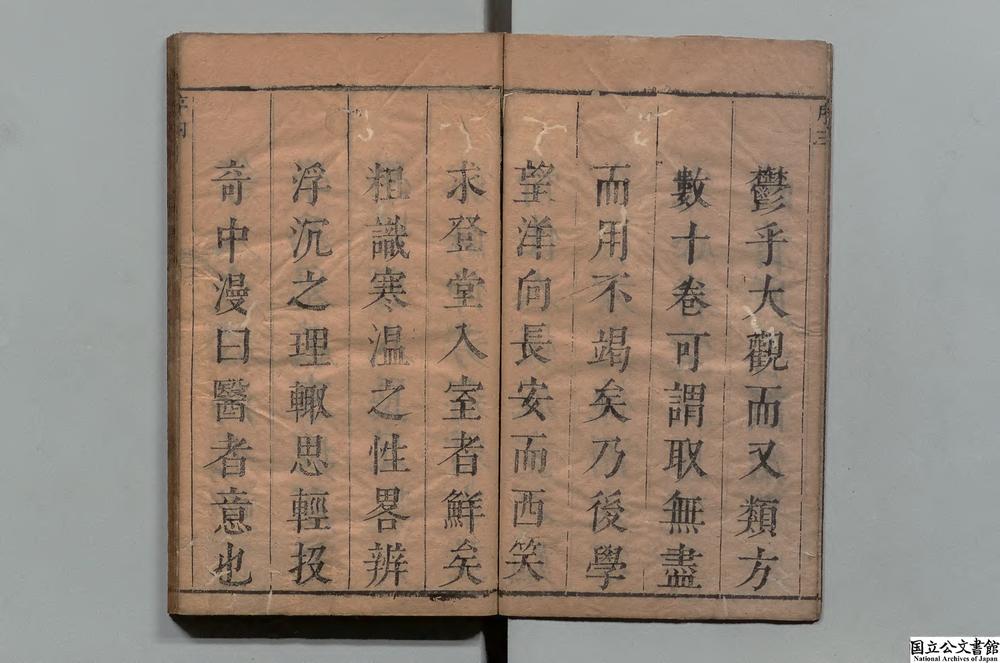 鬱乎大觀而又類方
數十卷可謂取無盡
而用不竭矣乃後學
望洋向長安而西笑
求登堂入室者鮮矣
粗識寒温之性畧辨
浮沉之理輙思輕投
竒中漫曰醫者意也
序三
国立公文書館
National Archives of Japan